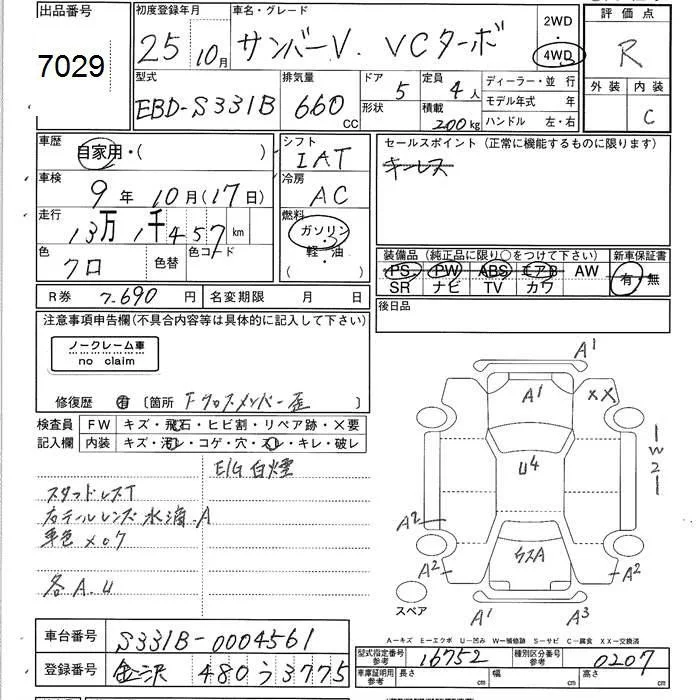 出品番号 初度登録年月 車名・グレード 2WD ・ 4WD 評価点
7029 25 10月 サンバーV. VCターボ R
型式 排気量 ドア 定員 ディーラー・並行 外装 内装
EBD-S331B 660 CC 5 4人 モデル年式 年 C
形状 積載 200kg ハンドル 左・右
車歴 自家用・( ) シフト セールスポイント (正常に機能するものに限ります)
IAT キーレス
車検 9年10月(17日) 冷房 AC
走行 13万1千457km 燃料 ガソリン・軽油
( )
色 クロ 色替 色コード 装備品 (純正品に限り○をつけて下さい) 新車保証書
PS PW ABS エアB AW 有・無
SR ナビ TV カワ
R券 7.690円 名変期限 月 日 後日品
注意事項申告欄(不具合内容等は具体的に記入して下さい)
ノークレーム車
no claim
修復歴 有 〔箇所 Fクロスメンバー歪 〕
検査員 FW キズ・飛石・ヒビ割・リペア跡・×要
記入欄 内装 キズ・汚レ・コゲ・穴・スレ・キレ・破レ
E/G白煙
スタッドレスT
右テールレンズ水滴.A
車色×07
各A.U
A1
A1
XX
U4
W2
A2
ウスA
A2
A2
A1
A3
スペア
A-キズ E-エクボ U-凹み W-補修跡 S-サビ C-腐食 XX-交換済
車台番号 S331B-0004561
型式指定番号 参考 16752 種別区分番号 参考 0207
登録番号 金沢 480 う 3775
車庫証明用 参考 長さ cm 幅 cm 高さ cm